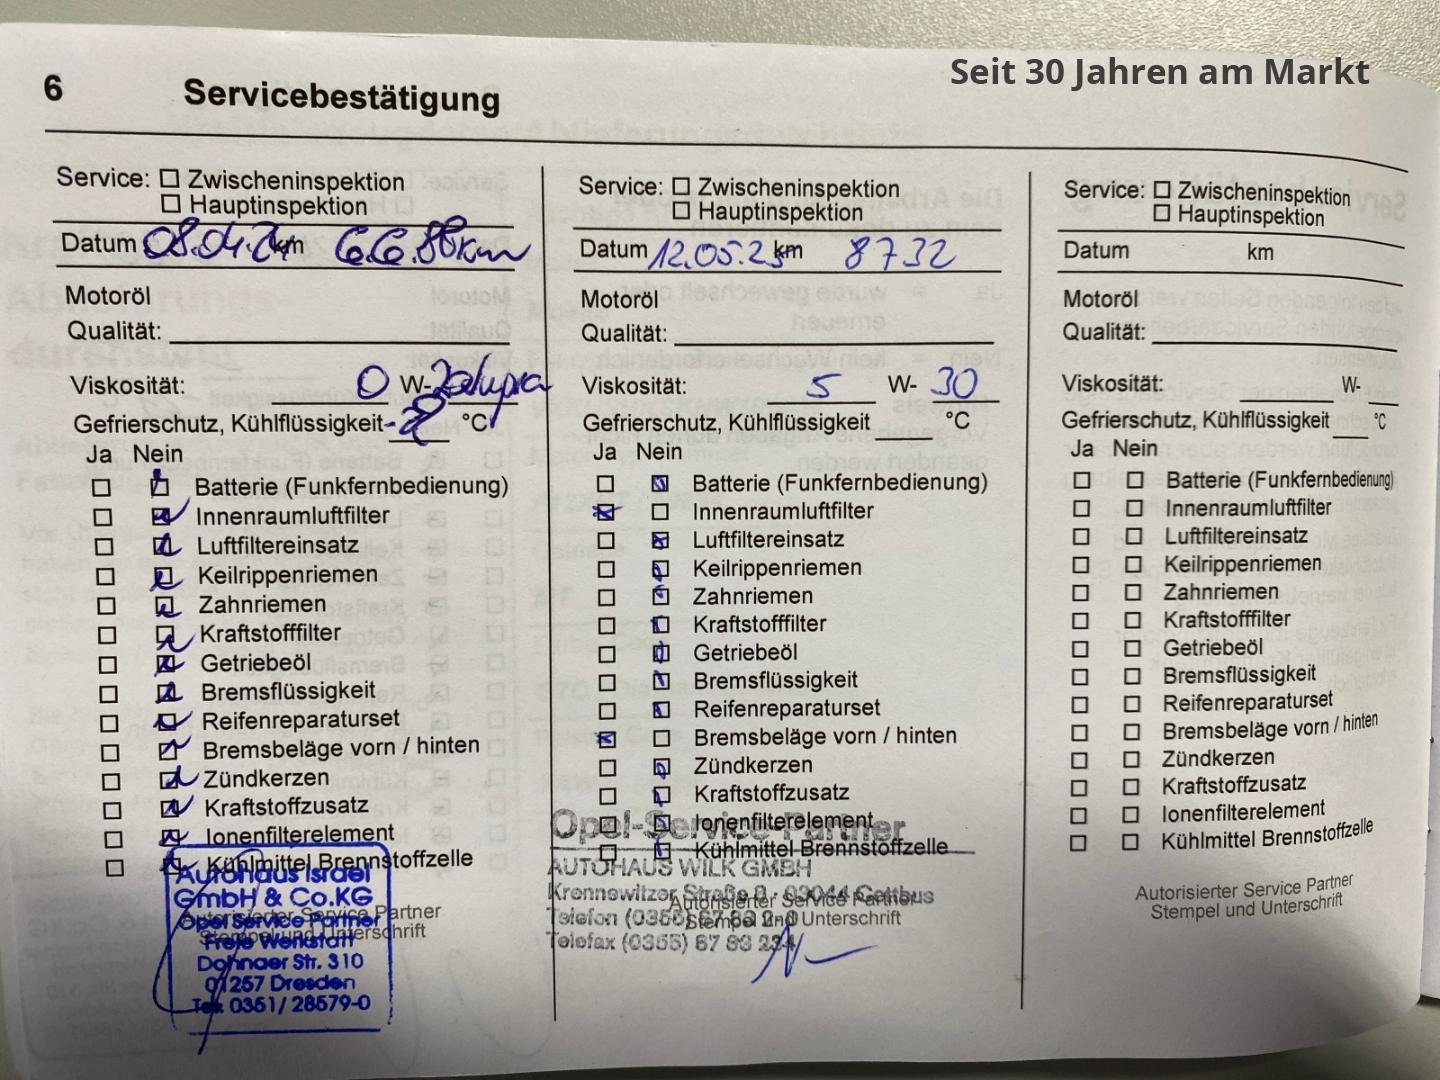 Seit 30 Jahren am Markt
6 Servicebestätigung
Service: Zwischeninspektion
Hauptinspektion
Datum 08.04.24 km
Motoröl
Qualität:
Viskosität: 0 W-
Gefrierschutz, Kühlflüssigkeit °C
Ja Nein
Batterie (Funkfernbedienung)
Innenraumluftfilter
Luftfiltereinsatz
Keilrippenriemen
Zahnriemen
Kraftstofffilter
Getriebeöl
Bremsflüssigkeit
Reifenreparaturset
Bremsbeläge vorn / hinten
Zündkerzen
Kraftstoffzusatz
Ionenfilterelement
Kühlmittel Brennstoffzelle
Autorisierter Service Partner
Stempel und Unterschrift
Autohaus Israel
GmbH & Co.KG
Opel Service Partner
Freie Werkstatt
Dohnaer Str. 310
01257 Dresden
Tel. 0351/ 28579-0
Service: Zwischeninspektion
Hauptinspektion
Datum 12.05.25 km 8732
Motoröl
Qualität:
Viskosität: 5 W- 30
Gefrierschutz, Kühlflüssigkeit °C
Ja Nein
Batterie (Funkfernbedienung)
Innenraumluftfilter
Luftfiltereinsatz
Keilrippenriemen
Zahnriemen
Kraftstofffilter
Getriebeöl
Bremsflüssigkeit
Reifenreparaturset
Bremsbeläge vorn / hinten
Zündkerzen
Kraftstoffzusatz
Ionenfilterelement
Kühlmittel Brennstoffzelle
Autorisierter Service Partner
Stempel und Unterschrift
Opel-Service Partner
AUTOHAUS WILK GMBH
Straße 8 · 03044 Cottbus
Telefon (0355)
Telefax (0355) 87 83 234
Service: Zwischeninspektion
Hauptinspektion
Datum km
Motoröl
Qualität:
Viskosität: W-
Gefrierschutz, Kühlflüssigkeit °C
Ja Nein
Batterie (Funkfernbedienung)
Innenraumluftfilter
Luftfiltereinsatz
Keilrippenriemen
Zahnriemen
Kraftstofffilter
Getriebeöl
Bremsflüssigkeit
Reifenreparaturset
Bremsbeläge vorn / hinten
Zündkerzen
Kraftstoffzusatz
Ionenfilterelement
Kühlmittel Brennstoffzelle
Autorisierter Service Partner
Stempel und Unterschrift